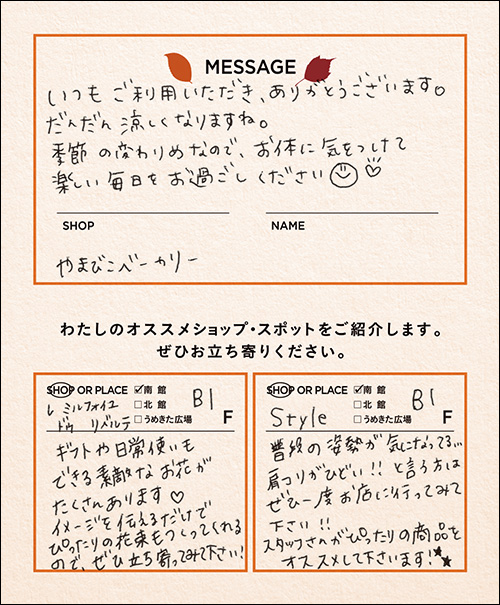 MESSAGE
いつもご利用いただき、ありがとうございます。
だんだん涼しくなりますね。
季節の変わりめなので、お体に気をつけて
楽しい毎日をお過ごしください
SHOP
NAME
やまびこベーカリー
わたしのオススメショップ・スポットをご紹介します。
ぜひお立ち寄りください。
SHOP OR PLACE
☑南 館
□北 館
□うめきた広場
B1 F
レ ミルフォイユ
ドゥ リベルテ
ギフトや日常使いも
できる素敵なお花が
たくさんあります♡
イメージを伝えるだけで
ぴったりの花束もつくってくれる
ので、ぜひ立ち寄ってみて下さい!
SHOP OR PLACE
☑南 館
□北 館
□うめきた広場
B1 F
Style
普段の姿勢が気になってる…
肩コリがひどい!! と言う方は
ぜひ一度お店に行ってみて
下さい!!
スタッフさんがぴったりの商品を
オススメして下さいます!★★